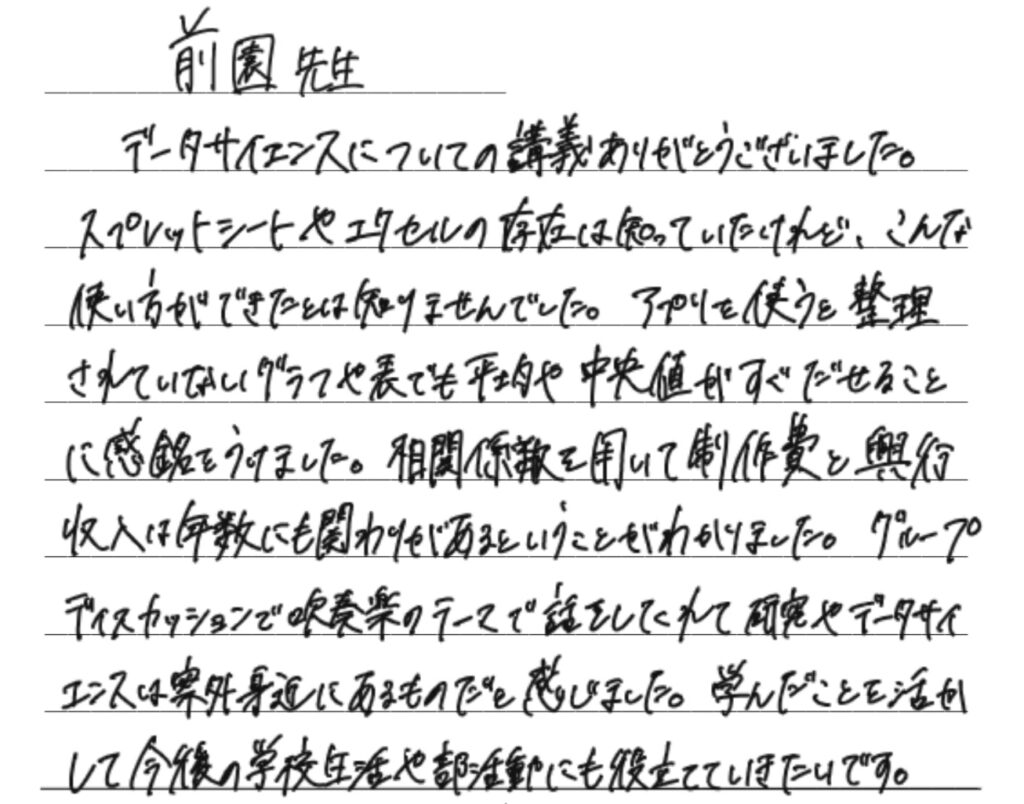 前園先生
データサイエンスについての講義ありがとうございました。
スプレットシートやエクセルの存在は知っていたけれど、こんな
使い方ができたとは知りませんでした。アプリを使うと整理
されていないグラフや表でも平均や中央値がすぐだせること
に感銘をうけました。相関係数を用いて制作費と興行
収入は年数にも関わりがあるということがわかりました。グループ
ディスカッションで吹奏楽のテーマで話をしてくれて研究やデータサイ
エンスは案外身近にあるものだと感じました。学んだことを活か
して今後の学校生活や部活動にも役立てていきたいです。